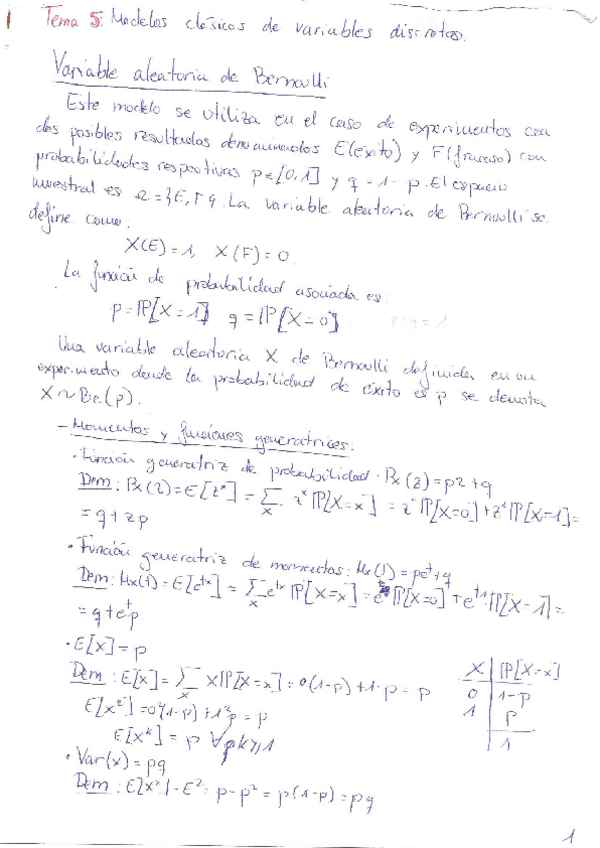 Tema 5: Modelos clásicos de variables discretas.
Variable aleatoria de Bernoulli
Este modelo se utiliza en el caso de experimentos con
dos posibles resultados denominados E(éxito) y F(fracaso) con
probabilidades respectivas p∈[0,1] y q = 1 - p. El espacio
muestral es Ω = {E, F}. La variable aleatoria de Bernoulli se
define como:
X(E)=1, X(F)=0.
La función de probabilidad asociada es:
p=ℙ[X=1] q=ℙ[X=0] p+q=1
Una variable aleatoria X de Bernoulli definida en un
experimento donde la probabilidad de éxito es p se denota
X~Be(p).
- Momentos y funciones generatrices:
• Función generatriz de probabilidad. Px(z)=pz+q
Dem: Px(z)=E[z^x] = ∑_x z^x ℙ[X=x] = z^0 ℙ[X=0] + z^1 ℙ[X=1] =
= q+zp
• Función generatriz de momentos: Mx(t)=pe^t+q
Dem: Mx(t)=E[e^tx] = ∑_x e^tx ℙ[X=x] = e^t0 ℙ[X=0] + e^t1 ℙ[X=1] =
= q+e^t p
• E[x]=p
Dem: E[x]=∑_x xℙ[X=x]=0(1-p)+1·p = p
E[x^2]=0^2(1-p)+1^2p=p
E[x^k] = p ∀ k≥1
X | ℙ[X=x]
0 | 1-p
1 | p
1
• Var(x)=pq
Dem: E[x^2]-E^2= p-p^2 = p(1-p)=pq
1